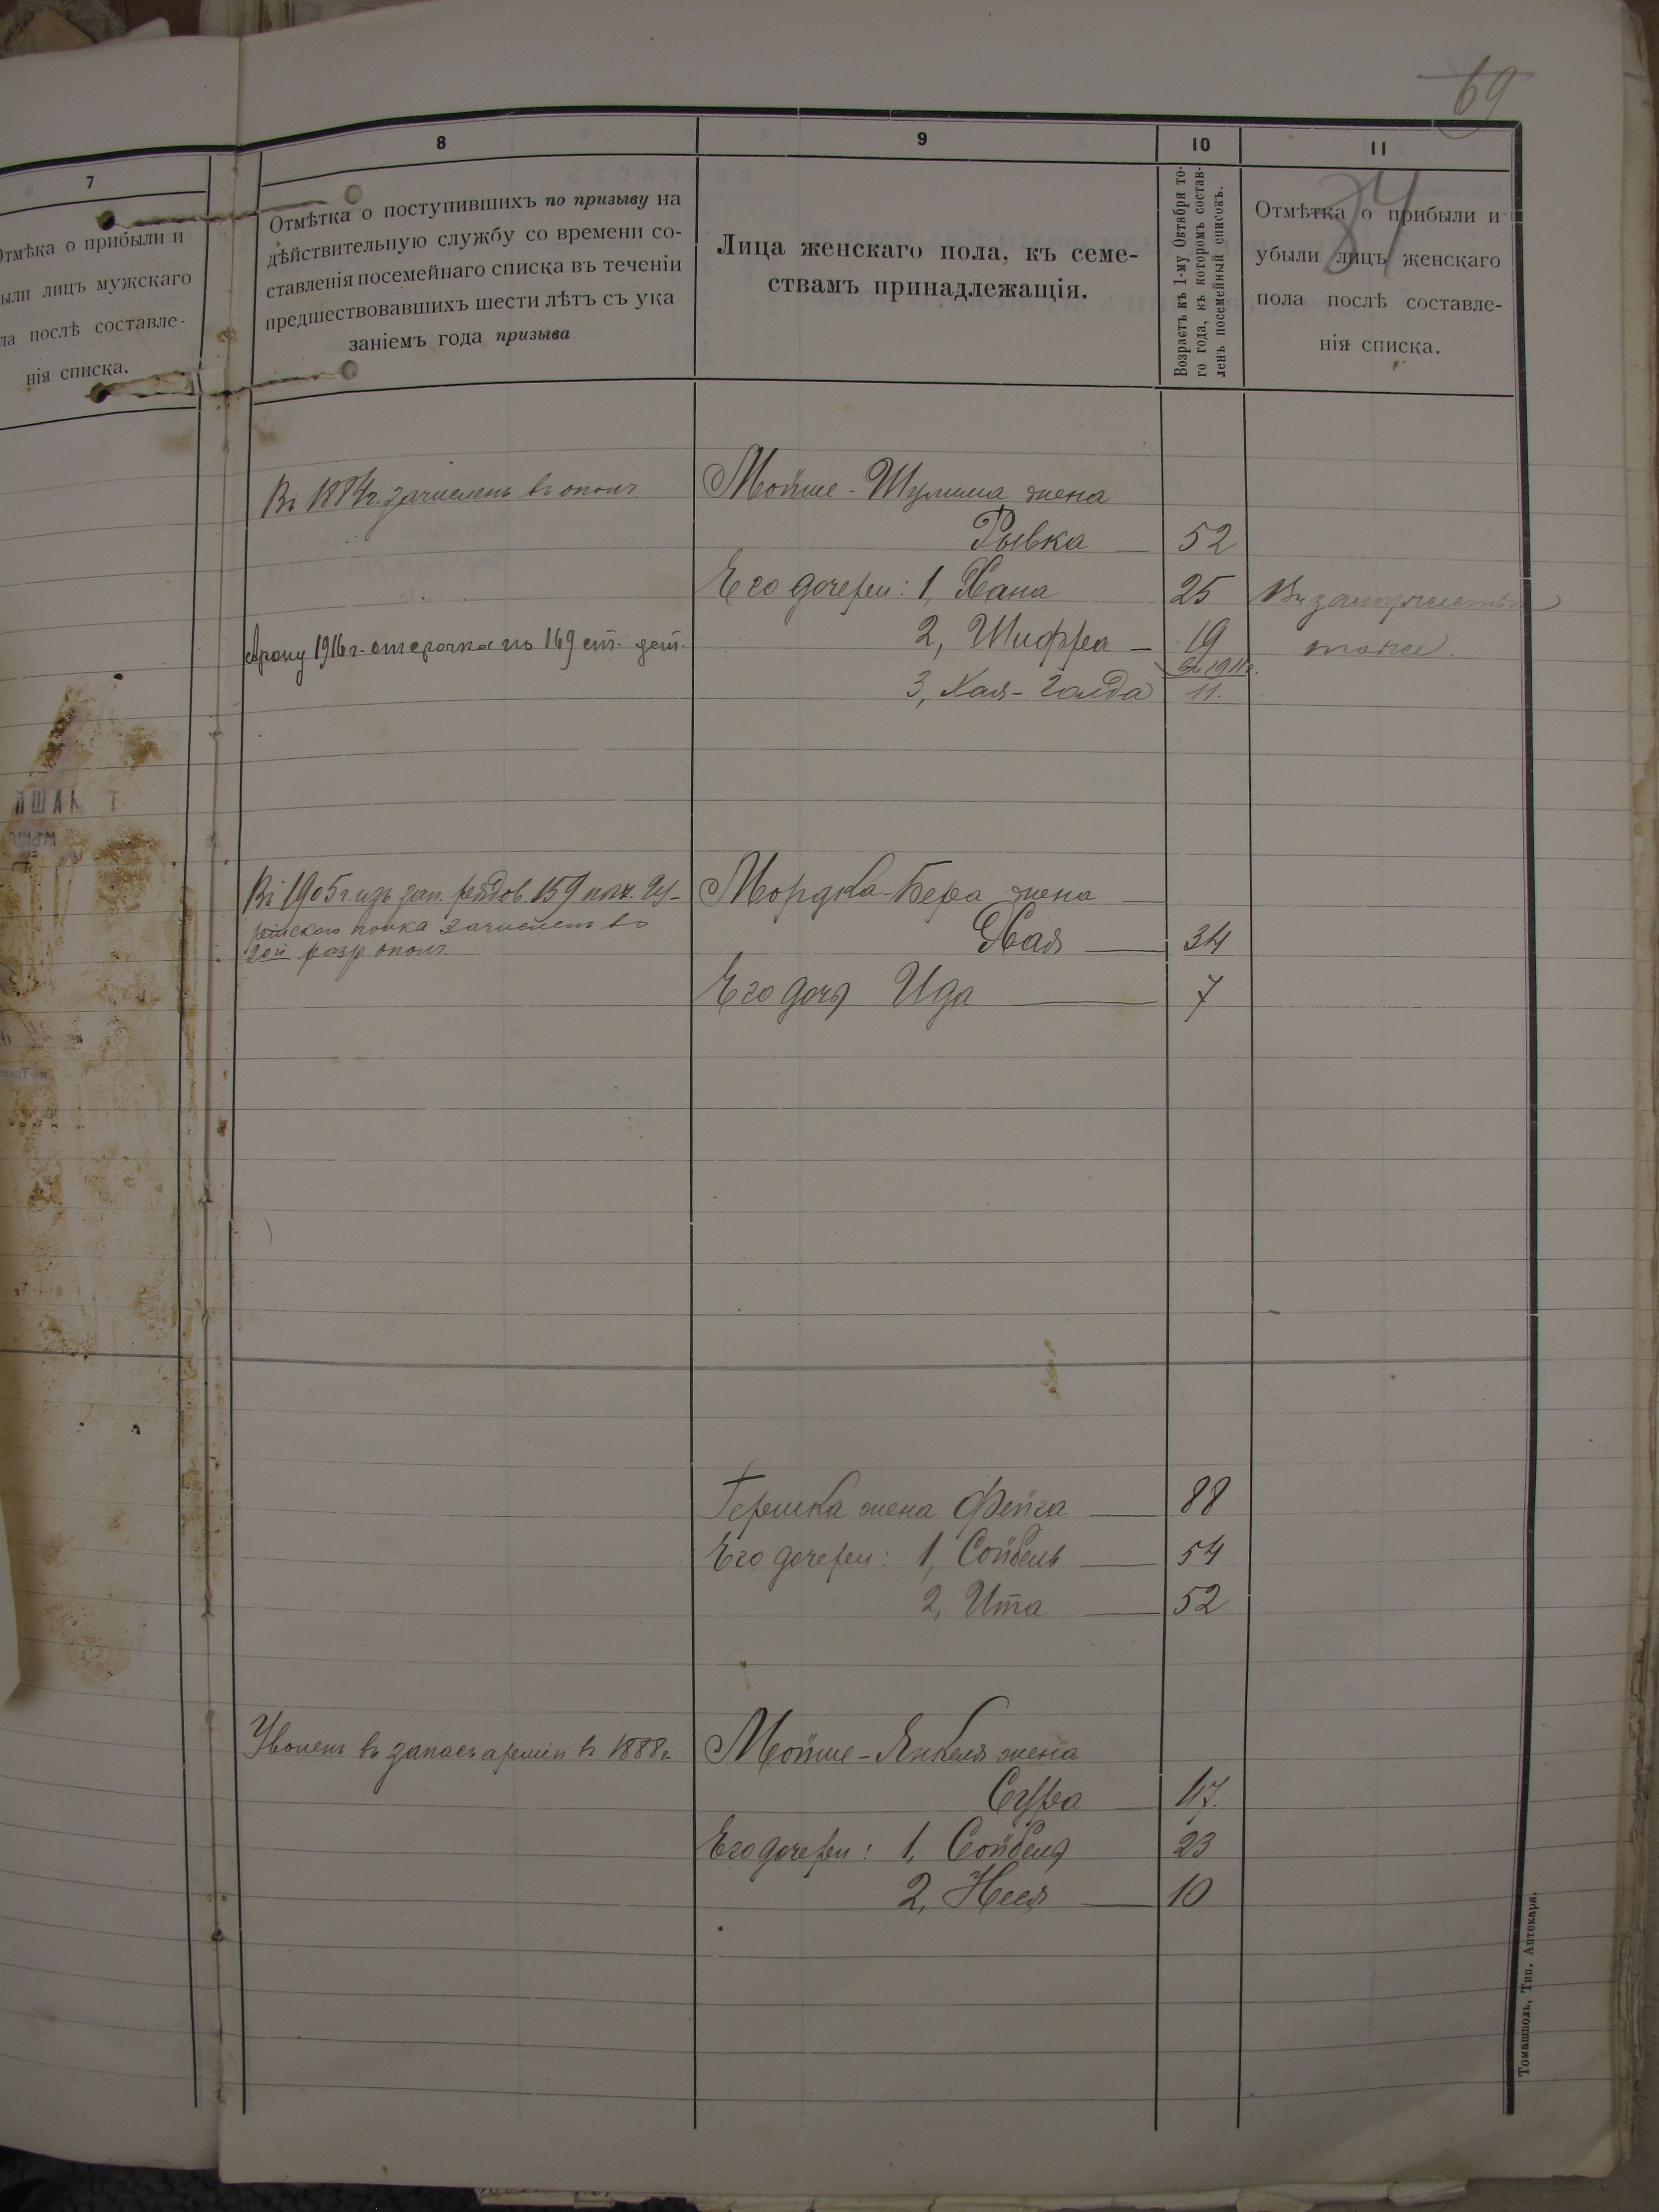 69
34
7
8
9
10
11
Отмѣка о прибыли и
были лицъ мужскаго
ла послѣ составле-
нія списка.
Отмѣтка о поступившихъ по призыву на
дѣйствительную службу со времени со-
ставленія посемейнаго списка въ теченіи
предшествовавшихъ шести лѣтъ съ ука
заніемъ года призыва
Лица женскаго пола, къ семе-
ствамъ принадлежащія.
Возрастъ къ 1-му Октября то-
го года, къ которомъ состав-
ленъ посемейный списокъ.
Отмѣтка о прибыли и
убыли лицъ женскаго
пола послѣ составле-
нія списка.
Въ 1884г. зачисленъ въ ополч.
Мойше-Шулима жена
Рывка — 52
Его дочери: 1, Хана 25 Въ замужествѣ
сроку 1916г. отсрочка по 169 ст. 2, Шифра — 19 тоже.
въ 1911г.
3, Хая-Голда 11.
Въ 1905г. изъ зап. рядов. 159 пѣх. Гу-
рійскаго полка зачисленъ во
2ой разр. ополч.
Мордка-Бера жена
Хая — 34
Его дочь Ида — 7
Гершка жена Фейга — 88
Его дочери: 1, Сойбель — 54
2, Ита — 52
Уволенъ въ запасъ арміи въ 1888г.
Мойше-Янкеля жена
Сура — 47.
Его дочери: 1, Сойбель 23
2, Неся — 10
Томашполь, Тип. Аптекаря.